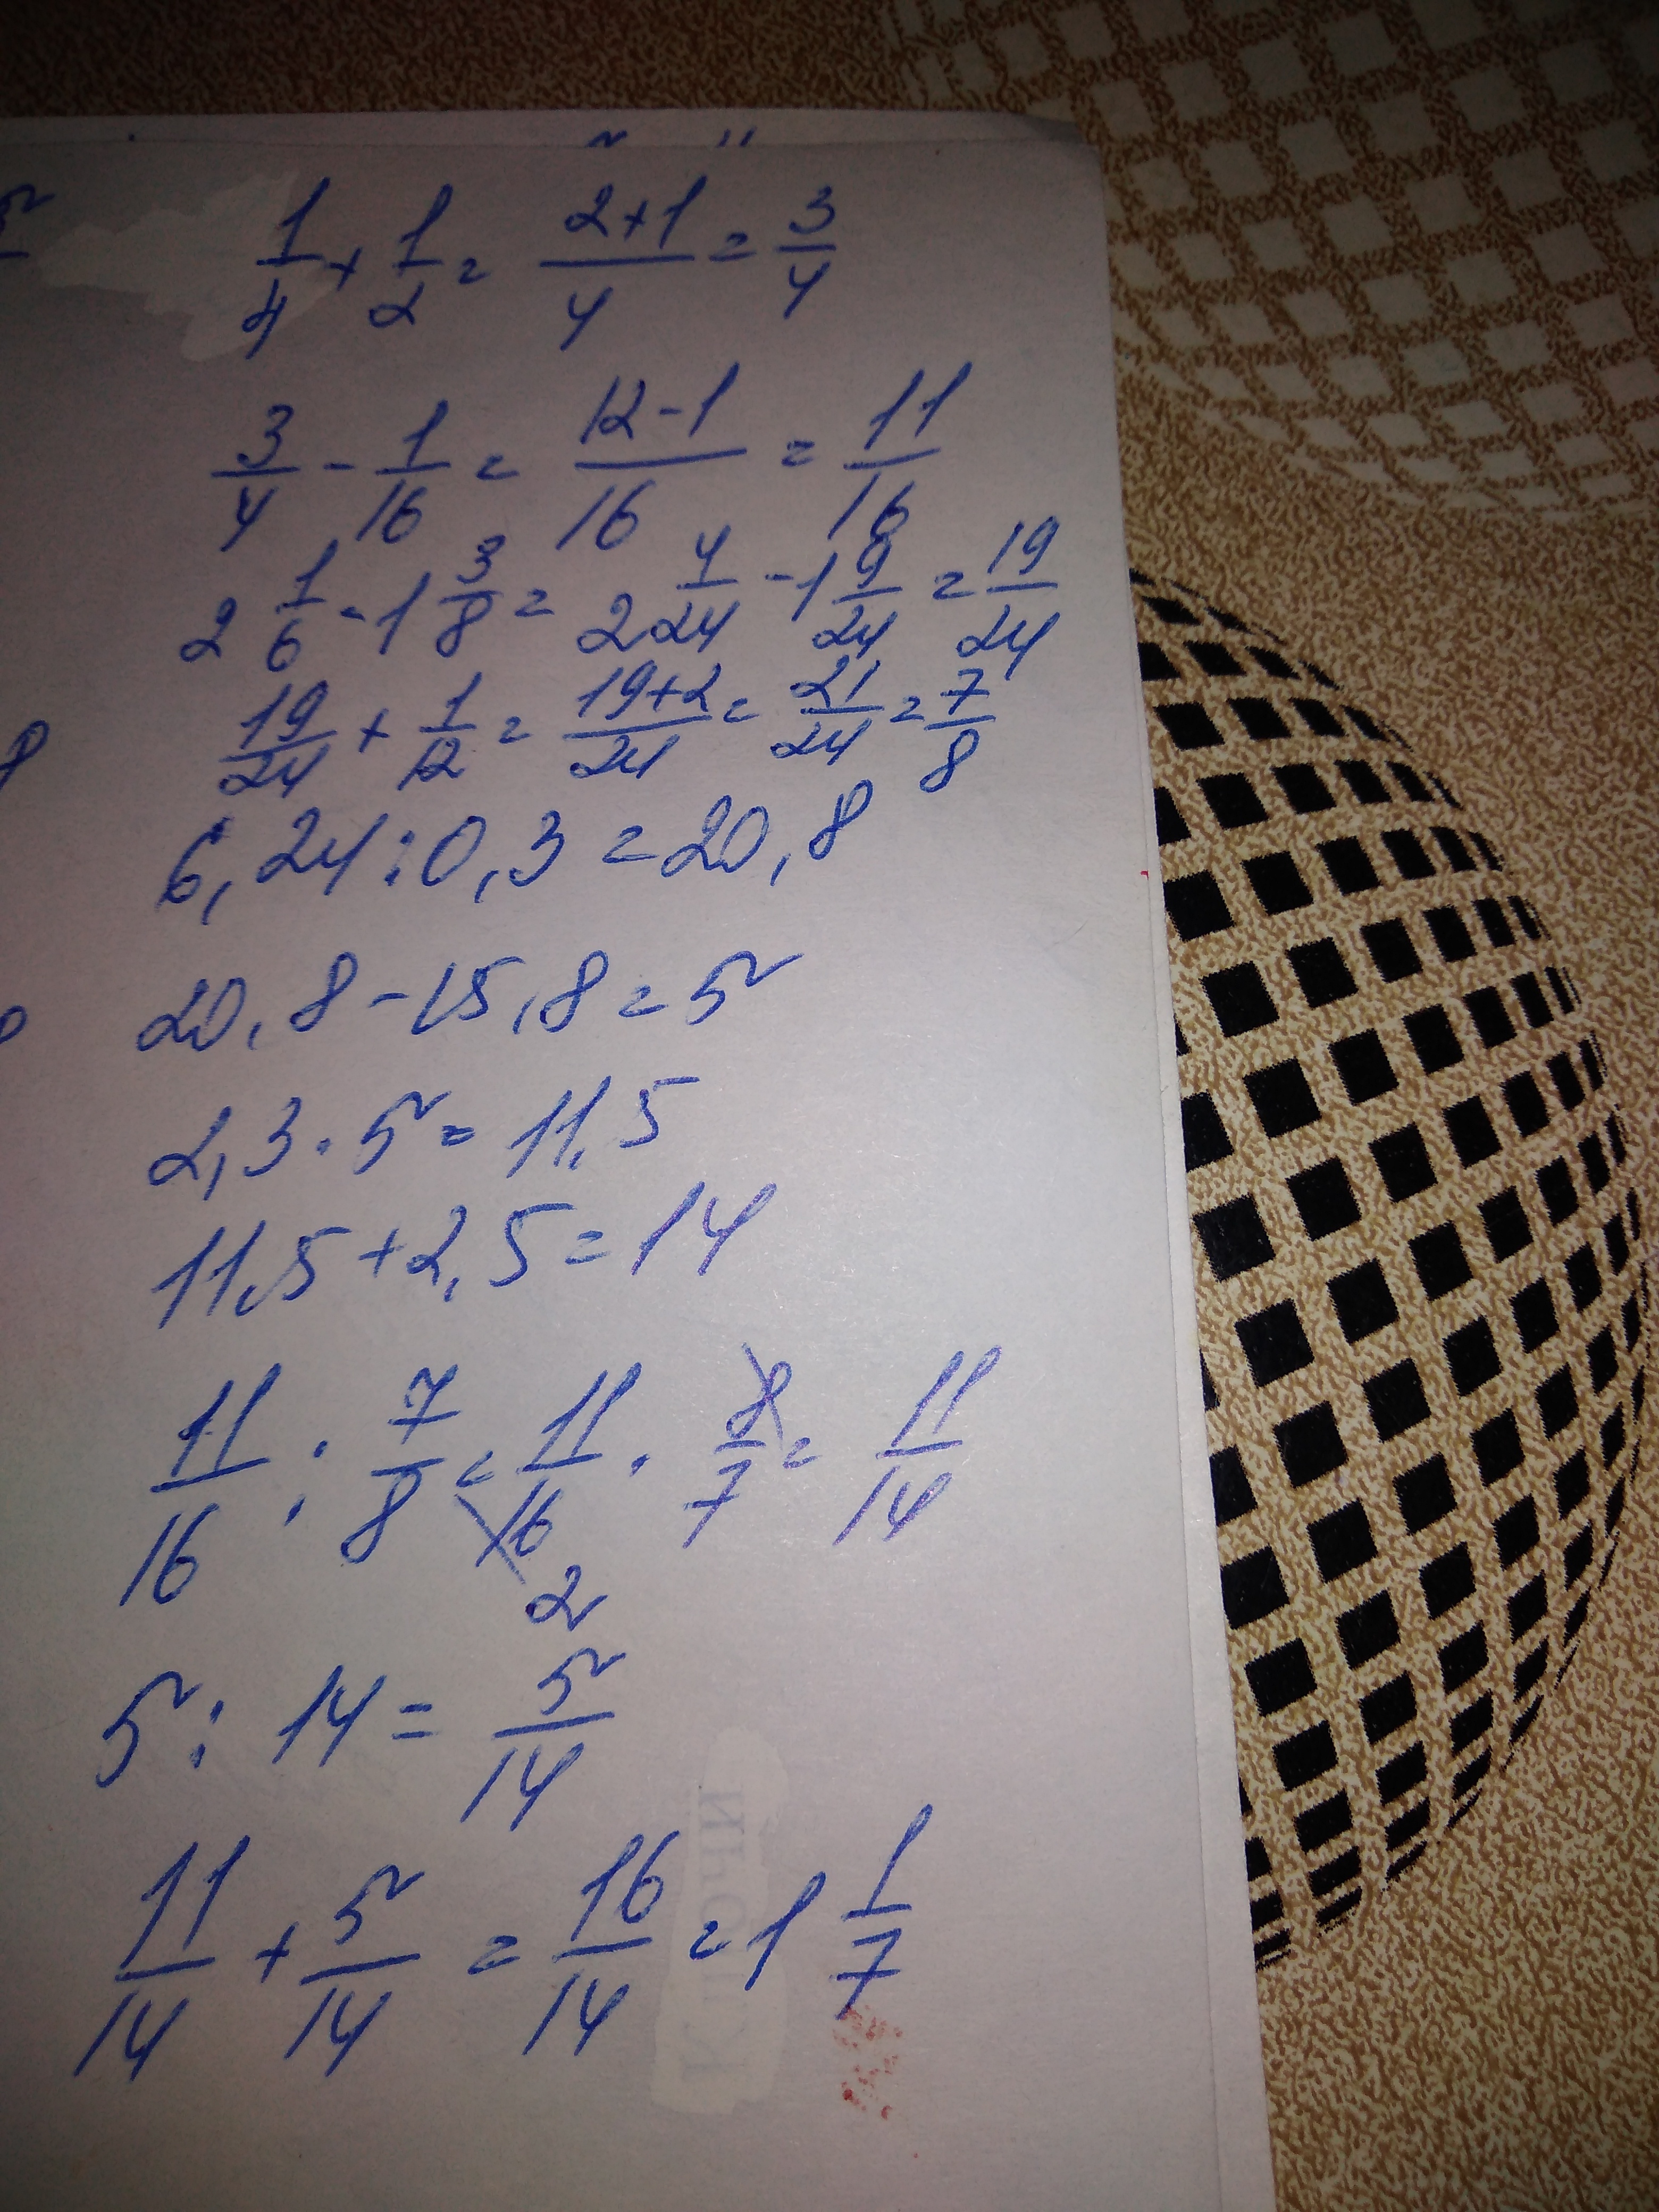 1/4 + 1/2 = (2+1)/4 = 3/4
3/4 - 1/16 = (12-1)/16 = 11/16
2 1/6 - 1 3/8 = 2 4/24 - 1 9/24 = 19/24
19/24 + 1/12 = (19+2)/24 = 21/24 = 7/8
6,24 : 0,3 = 20,8
20,8 - 15,8 = 5
2,3 · 5 = 11,5
11,5 + 2,5 = 14
11/16 : 7/8 = 11/16 · 8/7 = 11/14
2
5 : 14 = 5/14
11/14 + 5/14 = 16/14 = 1 1/7